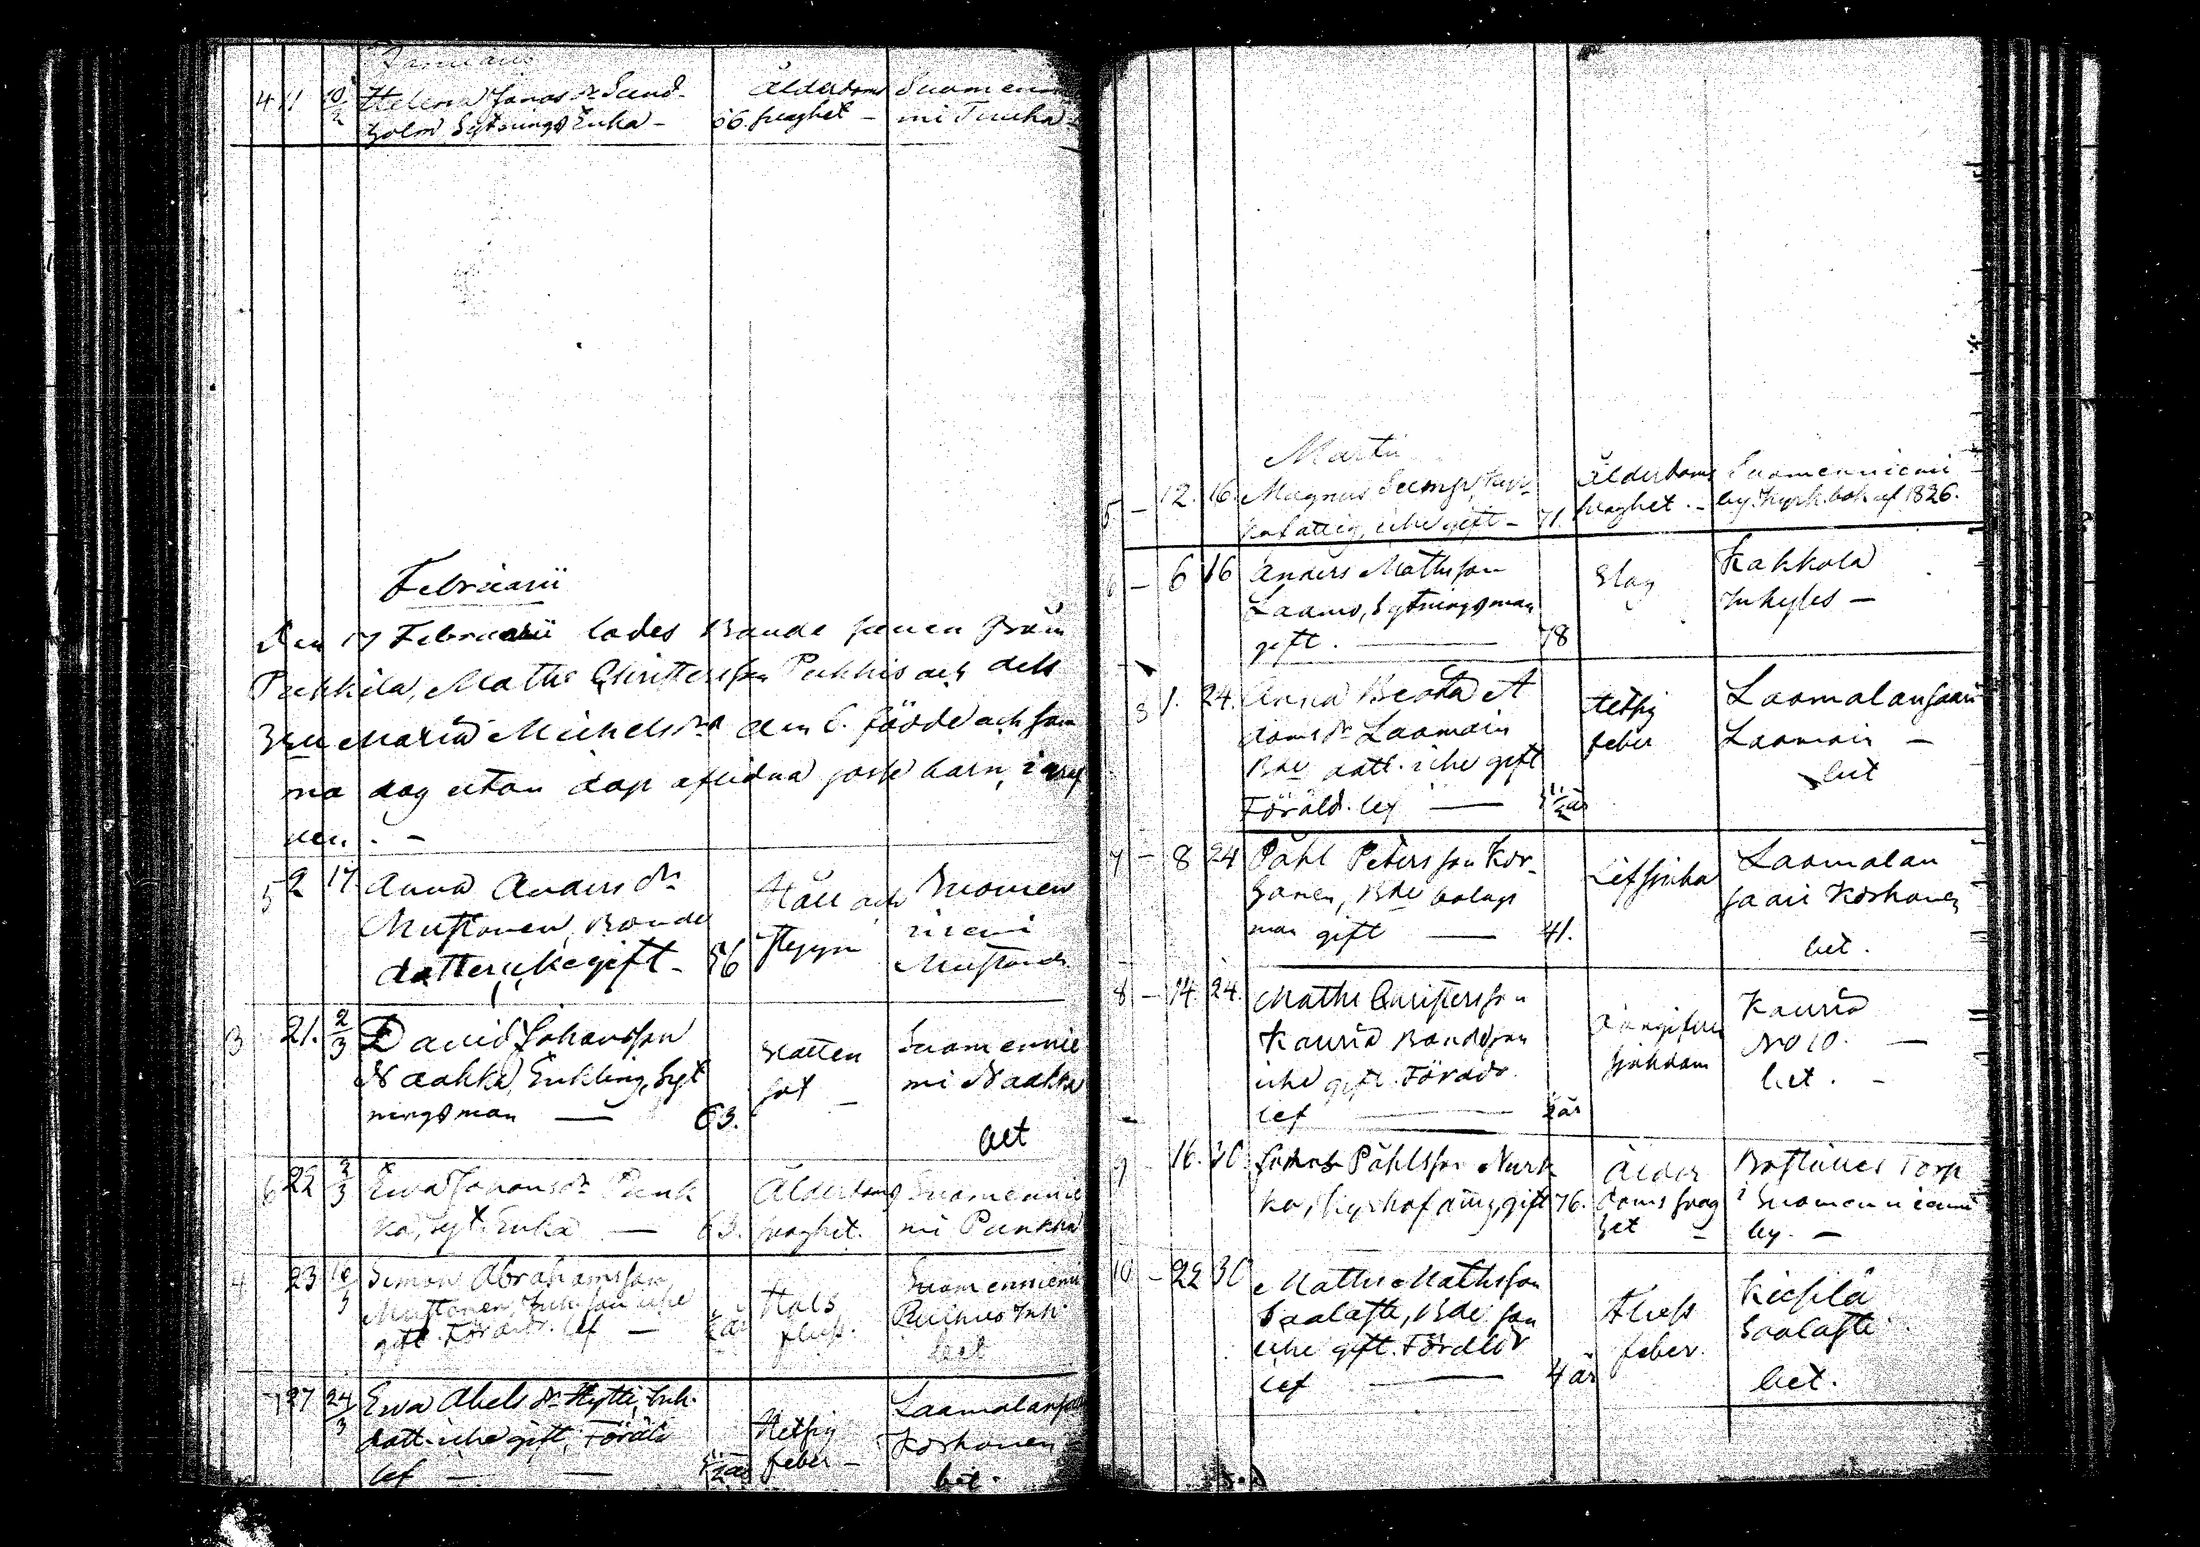 Januarii
4 11 10/2 Helena Jonas dr Sund-
holm Sytnings Enka – 66. Ålderdoms
svaghet – Suomenniemi
Februarii
Den 17 Februarii lades Bonde sonen från
Pukkila, Mathe Christersson Pukkis och dels
Hru Maria Michelsdr den 6. födde och sam
ma dag utan dop aflidna barn i
ven. –
5 2 17 Anna Anders dr
Mustonen, Bonde
dotter, icke gift – 56
Håll och
styng
Suomen
niemi
Mustonen
3 21. 2/3 David Johansson
Naakka, Enkling, Syt
ningsman — 63.
Watten
sot –
Suomennie
mi Naakka
bet
6 22 2/3 Ewa Johans dr Punk
ka, syt. Enka — 63.
Ålderdoms
svaghet.
Suomennie
mi Punkka
4 23 10/3 Simon Abrahamsson
Mustonen, Inh. son icke
gift. Föräldr. lef —
Hals
fluss.
Suomenniemi
Inh.
bet
7 27 24/3 Ewa Abels dr Hytti, Inh.
dott. icke gift, Föräld
lef — —
Hetsig
feber –
Laamalansaari
Korhonen
bet.
Martii
5 – 12. 16. Magnus Kyr-
kofattig, icke gift – 71.
Ålderdoms
svaghet. –
Suomenniemi
by. Kyrk. bok af 1826.
6 – 6 16 Anders Mathsson
Laamo, Sytningsman
gift. — 78
Slag
Kakkola
Inhyses —
3 1. 24. Anna Beata A
dams dr Laamain
Bde dott. icke gift
Föräld. lef —
Hetsig
feber
Laamalansaari
Laamain —
bet
7 – 8 24 Påhl Petersson Kor-
honen, Bde bolags
man gift — 41.
Lefsjuka
Laamalan
saari Korhonen
bet.
8 – 14. 24. Mathe Christersson
Kauria Bondeson
icke gift. Föräldr.
lef —
sjukdom
Kauria
No 10. —
bet. –
9 – 16. 30. Jakob Påhlsson Nurk
ka, Kyrkofattig, gift 76.
Ålder
doms svag
het –
Boställes Torp
i Suomenniemi
by. —
10 – 22 30 Mathe Mathsson
Saalasti, Bde son
icke gift. Föräldr
lef — 4 år
Fluss
feber.
Kiesilä
Saalasti.
bet.